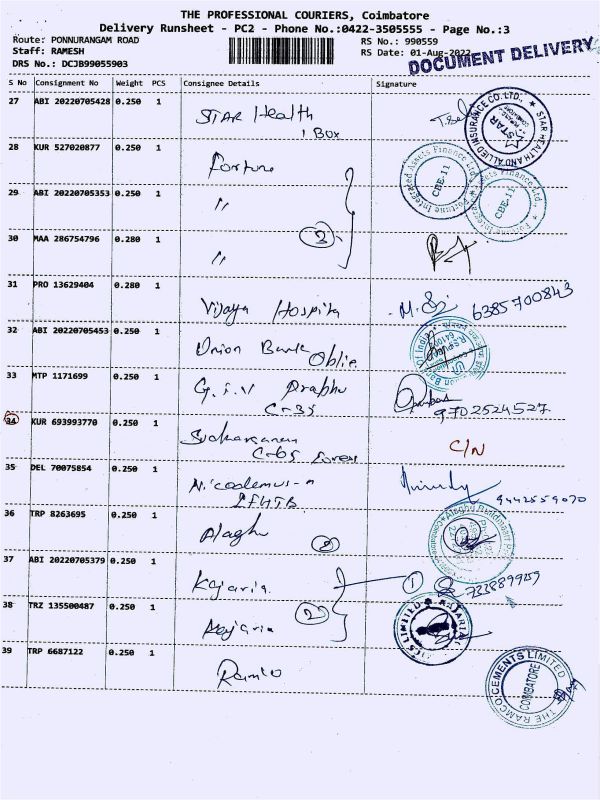 THE PROFESSIONAL COURIERS, Coimbatore
Delivery Runsheet - PC2 - Phone No.:0422-3505555 - Page No.:3
Route: PONNURANGAM ROAD RS No.: 990559
Staff: RAMESH RS Date: 01-Aug-2022
DOCUMENT DELIVERY
DRS No.: DCJB99055903
S No Consignment No Weight PCS Consignee Details Signature
27 ABI 20220705428 0.250 1 STAR Health
1 Box
STAR HEALTH AND ALLIED INSURANCE CO.LTD., STAR
28 KUR 527020877 0.250 1 Fortune
Fortune Integrated Assets Finance Ltd. CBE-11
Fortune Integrated Assets Finance Ltd. CBE-11
29 ABI 20220705353 0.250 1 "
3
30 MAA 286754796 0.280 1 "
31 PRO 13629404 0.280 1 Vijaya Hospital 6385700843
32 ABI 20220705453 0.250 1 Union Bank Oblic
Union Bank of India
33 MTP 1171699 0.250 1 G.I.V Prabhu
C-35 9702524527
34 KUR 693993770 0.250 1 C/N
35 DEL 70075854 0.250 1 9442559070
36 TRP 8263695 0.250 1 Alaghu
37 ABI 20220705379 0.250 1 Kajaria 1
2
38 TRZ 135500487 0.250 1 Kajaria
39 TRP 6687122 0.250 1 Ramco
THE RAMCO CEMENTS LIMITED COIMBATORE